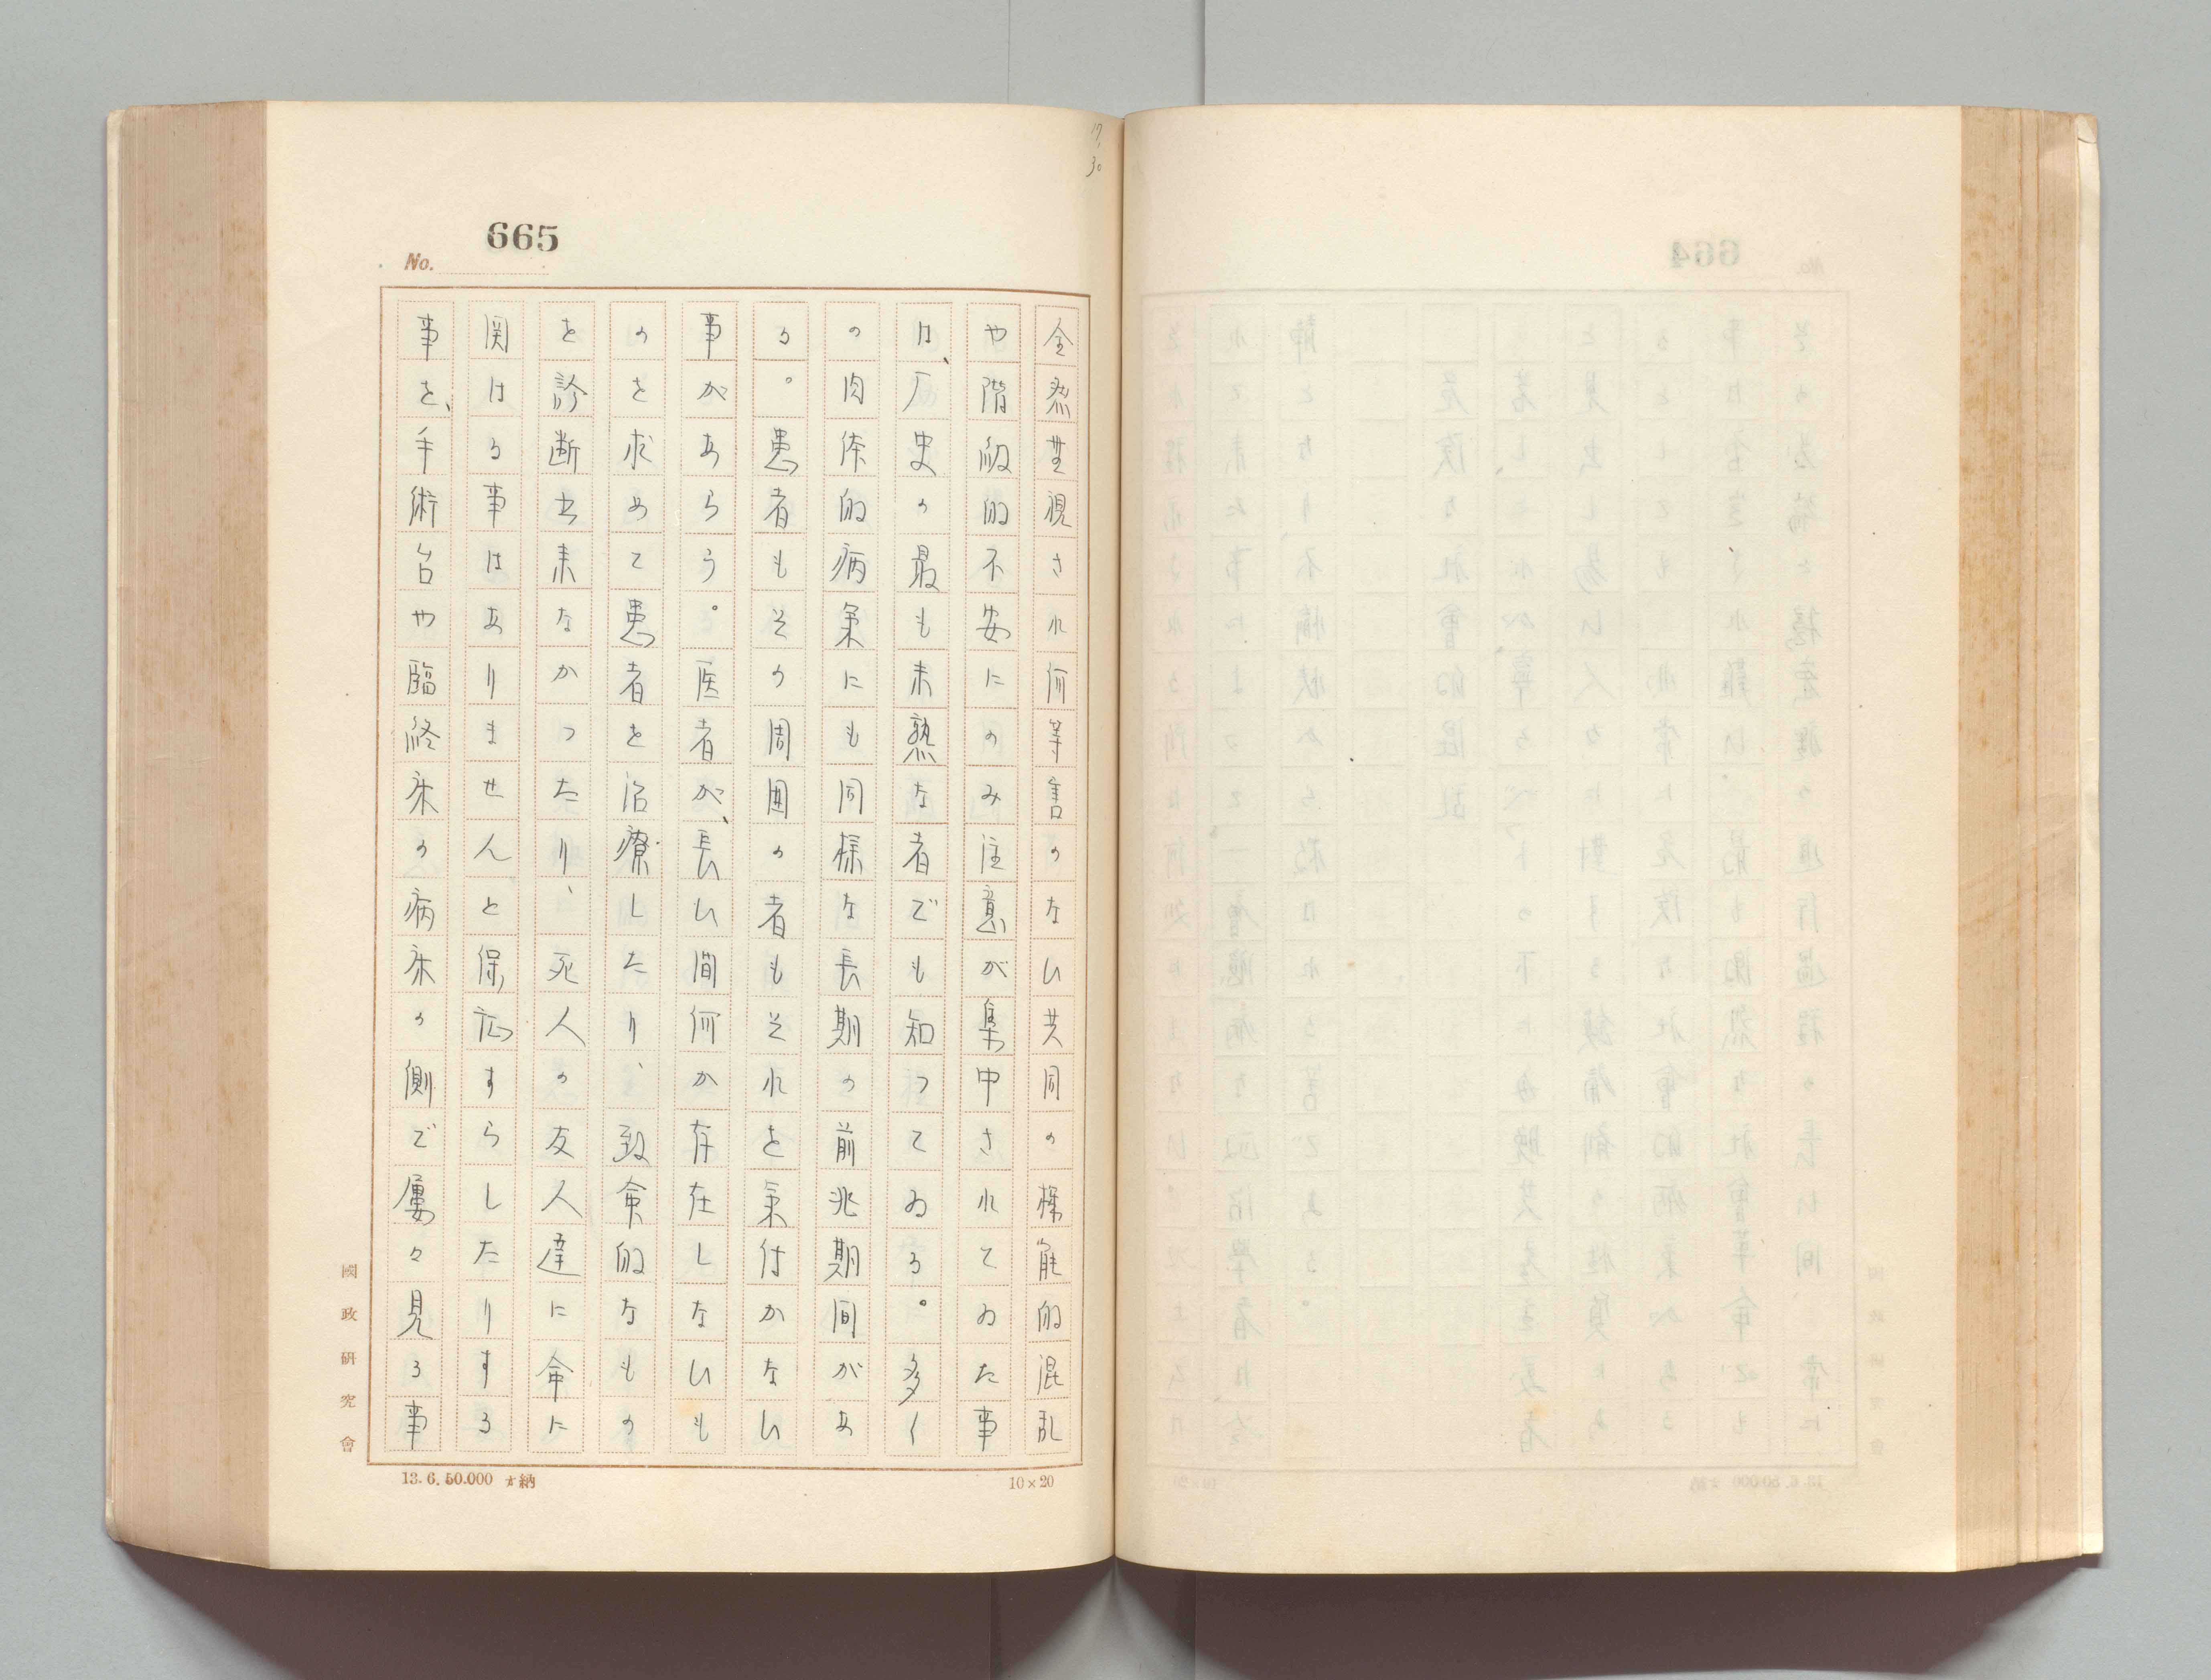 17,
30
665
No.
全然無視され何等害のない共同の様態的混乱
や階級的不安にのみ注意が集中されてゐた事
は、厂史の最も未熟な者でも知つてゐる。多く
の肉体的病気にも同様な長期の前兆期間があ
る。患者もその周囲の者もそれを気付かない
事があらう。医者が、長い間何か存在しないも
のを求めて患者を治療したり、致命的なもの
を診断出来なかつたり、死人の友人達に命に
関はる事はありませんと保応すらしたりする
事を、手術台や臨終床の病床の側で屡々見る事
國政研究會
13.6.50.000 納
10×20